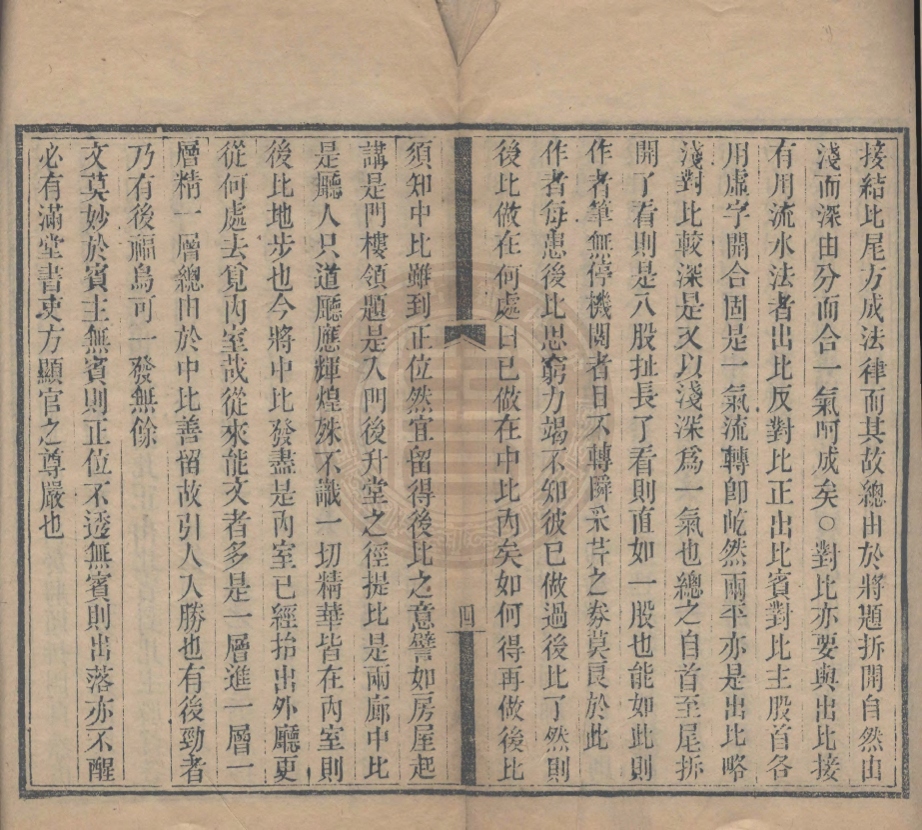 接結比尾方成法律而其故總由於將題拆開自然由
淺而深由分而合一氣呵成矣○對比亦要與出比接
有用流水法者出比反對比正出比賓對比主股首各
用虛字開合固是一氣流轉卽屹然兩平亦是出比略
淺對比較深是又以淺深爲一氣也總之自首至尾拆
開了看則是八股扯長了看則直如一股也能如此則
作者筆無停機閱者目不轉瞬采芹之券莫良於此
作者每患後比思窮力竭不知彼已做過後比了然則
後比做在何處曰已做在中比內矣如何得再做後比
四
須知中比雖到正位然宜留得後比之意譬如房屋起
講是門樓領題是入門後升堂之徑提比是兩廊中比
是廳人只道廳應輝煌殊不識一切精華皆在內室則
後比地步也今將中比發盡是內室已經抬出外廳更
從何處去覓內室哉從來能文者多是一層進一層一
層精一層總由於中比善留故引人入勝也有後勁者
乃有後福烏可一發無餘
文莫妙於賓主無賓則正位不透無賓則出落亦不醒
必有滿堂書吏方顯官之尊嚴也